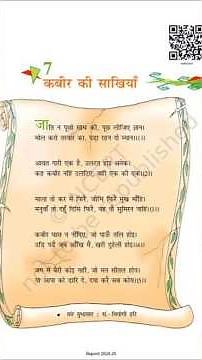 7
कबीर की साखियाँ
जाति न पूछो साध की, पूछ लीजिए ज्ञान।
मोल करो तरवार का, पड़ा रहन दो म्यान।।1।।
आवत गारी एक है, उलटत होइ अनेक।
कह कबीर नहिं उलटिए, वही एक की एक।।2।।
माला तो कर में फिरै, जीभि फिरै मुख माँहि।
मनुवाँ तो दहुँ दिसि फिरै, यह तौ सुमिरन नाहिं।।3।।
कबीर घास न नींदिए, जो पाऊँ तलि होइ।
उड़ि पड़ै जब आँखि मैं, खरी दुहेली होइ।।4।।
जग में बैरी कोइ नहीं, जो मन सीतल होय।
या आपा को डारि दे, दया करै सब कोय।।5।।
Reprint 2024-25